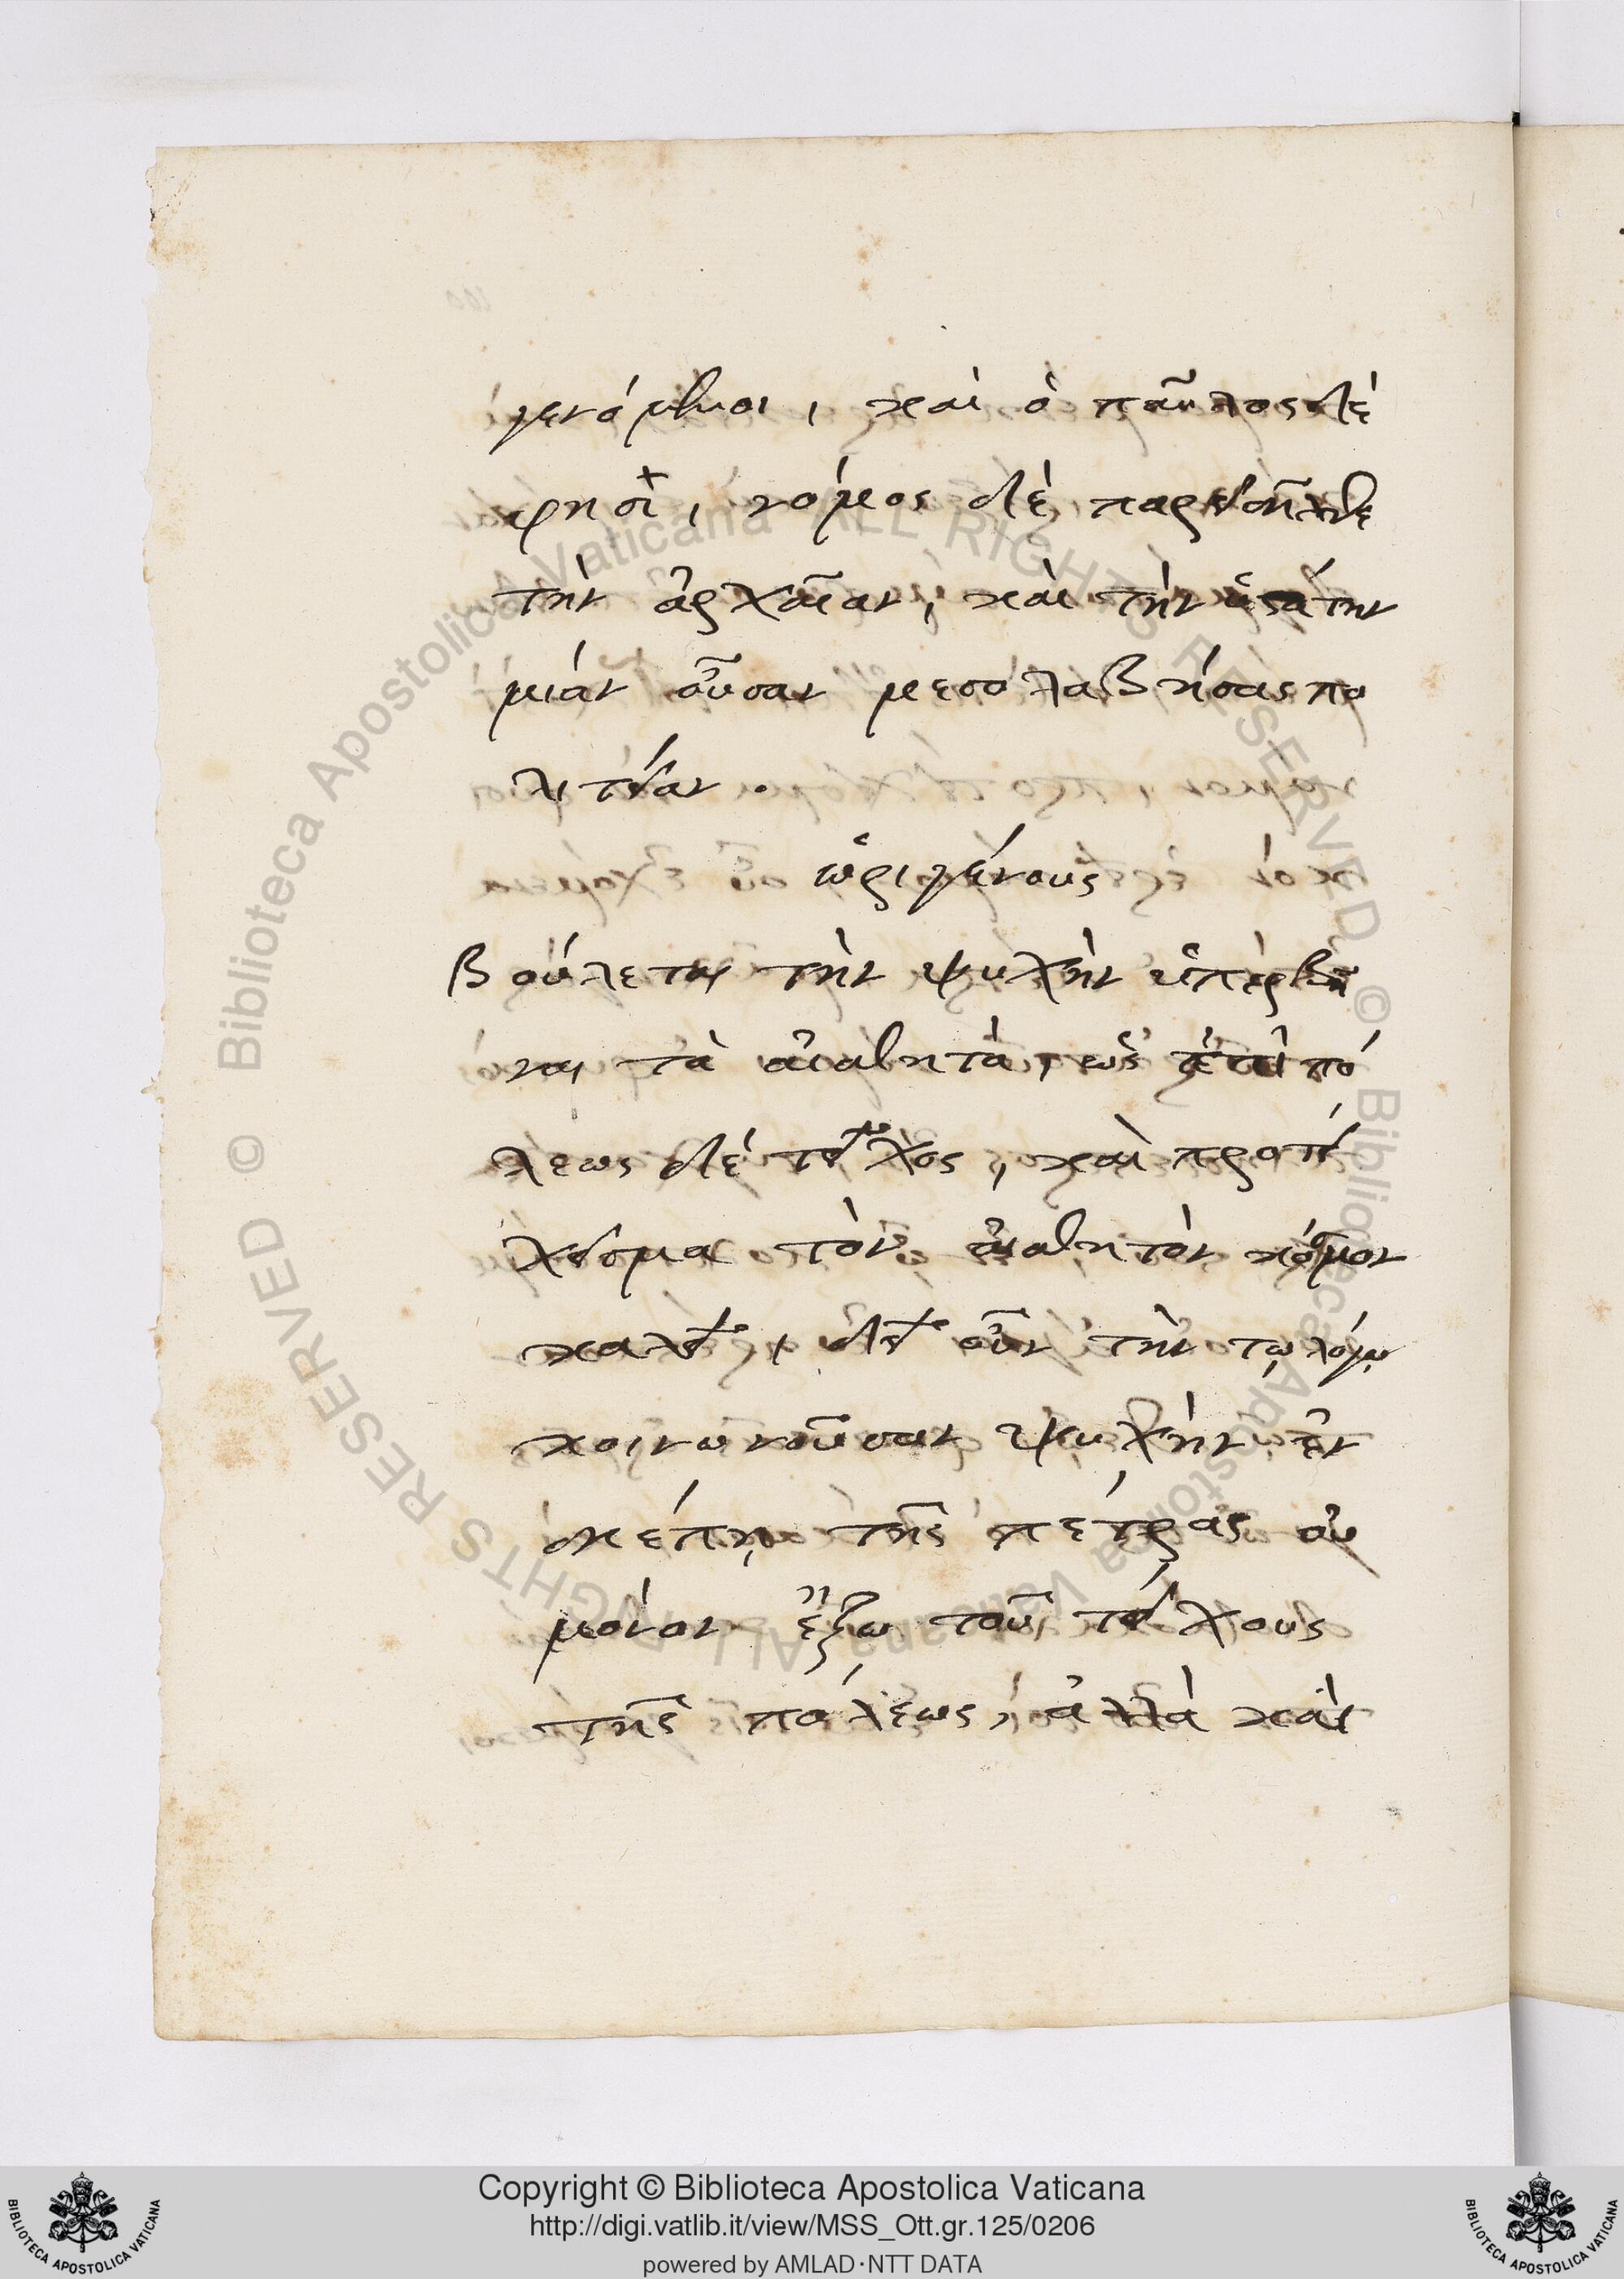 γενόμενοι, καὶ ὁ παῦλος δέ
φησὶ, νόμος δὲ παρεισῆλθε
τὴν ἀρχαῖαν, καὶ τὴν ὑστάτην
μιὰν οὖσαν μεσολαβήσας πο
λιτείαν.
ὠριγένους
Βούλεται τὴν ψυχὴν ὑπερβῆ
ναι τὰ αἰσθητὰ, ὡς ἐπὶ πό
λεως δὲ τεῖχος, καὶ προτεί
χεισμα τὸν αἰσθητὸν κόσμον
καλεῖ, δεῖ οὖν τὴν τῳ λόγῳ
κοινωνοῦσαν ψυχὴν ἐν
σκέπῃ τῆς πέτρας οὐ
μόνον ἔξω τοῦ τείχους
τῆς πόλεως, ἀλλὰ καὶ
Copyright © Biblioteca Apostolica Vaticana
http://digi.vatlib.it/view/MSS_Ott.gr.125/0206
powered by AMLAD·NTT DATA
BIBLIOTECA APOSTOLICA VATICANA
BIBLIOTECA APOSTOLICA VATICANA
© Biblioteca Apostolica Vaticana ALL RIGHTS RESERVED
© Biblioteca Apostolica Vaticana ALL RIGHTS RESERVED